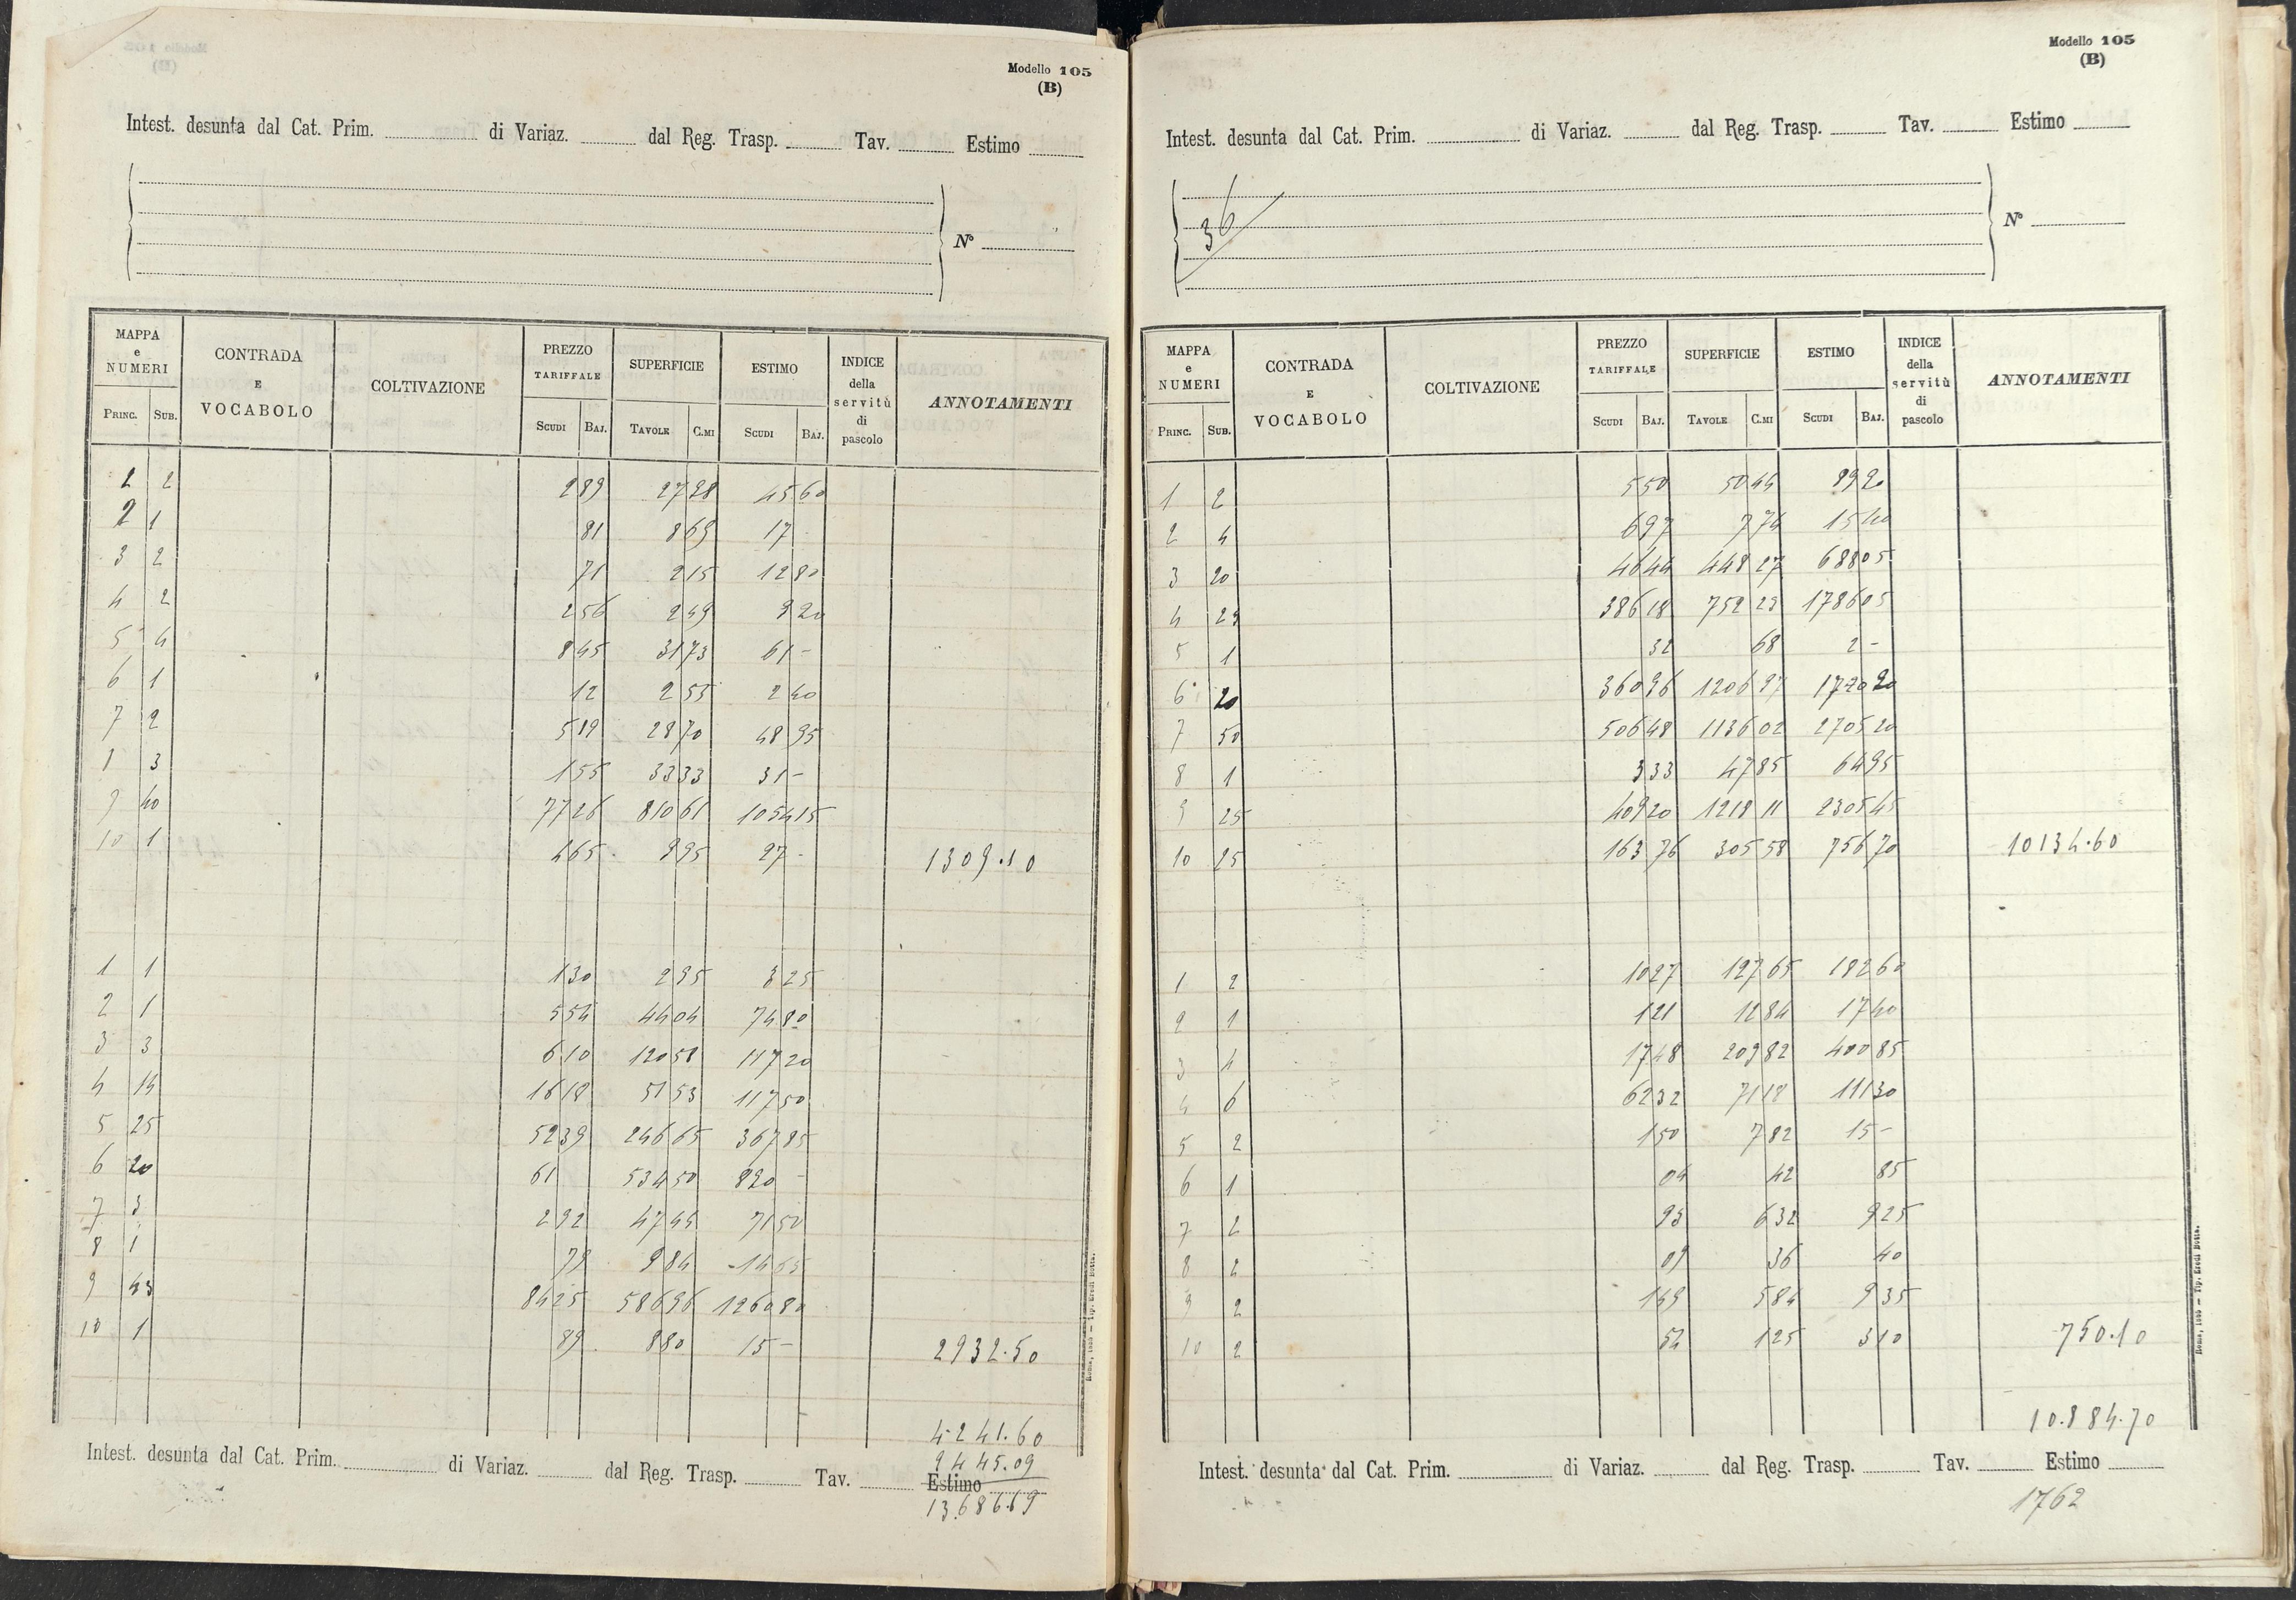 Modello 105
(B)
Intest. desunta dal Cat. Prim. di Variaz. dal Reg. Trasp. Tav. Estimo
N°
MAPPA e NUMERI CONTRADA E VOCABOLO COLTIVAZIONE PREZZO TARIFFALE SUPERFICIE ESTIMO INDICE della servitù di pascolo ANNOTAMENTI
PRINC. SUB. SCUDI BAJ. TAVOLE C.MI SCUDI BAJ.
1 2 2 89 27 28 45 60
2 1 81 8 69 17 -
3 2 71 2 15 12 80
4 2 2 56 2 49 9 20
5 4 8 45 31 73 61 -
6 1 12 2 55 2 40
7 2 5 19 28 70 48 95
1 3 1 55 33 33 31 -
9 40 77 26 810 61 1054 15
10 1 4 65 9 95 27 - 1309.10
1 1 1 30 2 95 8 25
2 1 5 54 44 04 74 80
3 3 6 10 120 58 117 20
4 14 16 18 51 53 117 50
5 25 52 39 246 65 367 85
6 20 61 534 50 820 -
7 3 2 92 47 45 71 50
8 1 79 9 84 14 65
9 43 84 25 586 96 1260 80
10 1 89 8 80 15 - 2932.50
4.241.60
9445.09
Intest. desunta dal Cat. Prim. di Variaz. dal Reg. Trasp. Tav. Estimo
13.686.69
Roma, — Tip. Eredi Botta.
Modello 105
(B)
Intest. desunta dal Cat. Prim. di Variaz. dal Reg. Trasp. Tav. Estimo
36
N°
MAPPA e NUMERI CONTRADA E VOCABOLO COLTIVAZIONE PREZZO TARIFFALE SUPERFICIE ESTIMO INDICE della servitù di pascolo ANNOTAMENTI
PRINC. SUB. SCUDI BAJ. TAVOLE C.MI SCUDI BAJ.
1 2 5 50 50 44 89 20
2 4 6 97 7 74 15 40
3 20 46 44 448 27 688 05
4 29 386 18 752 23 1786 05
5 1 32 68 2 -
6 20 360 96 1206 97 1720 20
7 50 506 48 1136 02 2705 20
8 1 3 33 47 85 64 95
9 25 409 20 1218 11 2305 45
10 25 163 76 305 58 756 70 10134.60
1 2 10 27 127 65 182 60
2 1 1 21 12 84 17 40
3 4 17 48 209 82 400 85
4 6 62 32 71 18 111 30
5 2 1 50 7 82 15 -
6 1 04 42 85
7 2 93 6 32 9 25
8 2 09 36 40
9 2 1 49 5 84 9 35
10 2 52 1 25 3 10 750.10
10.884.70
Intest. desunta dal Cat. Prim. di Variaz. dal Reg. Trasp. Tav. Estimo
1762
Roma, — Tip. Eredi Botta.